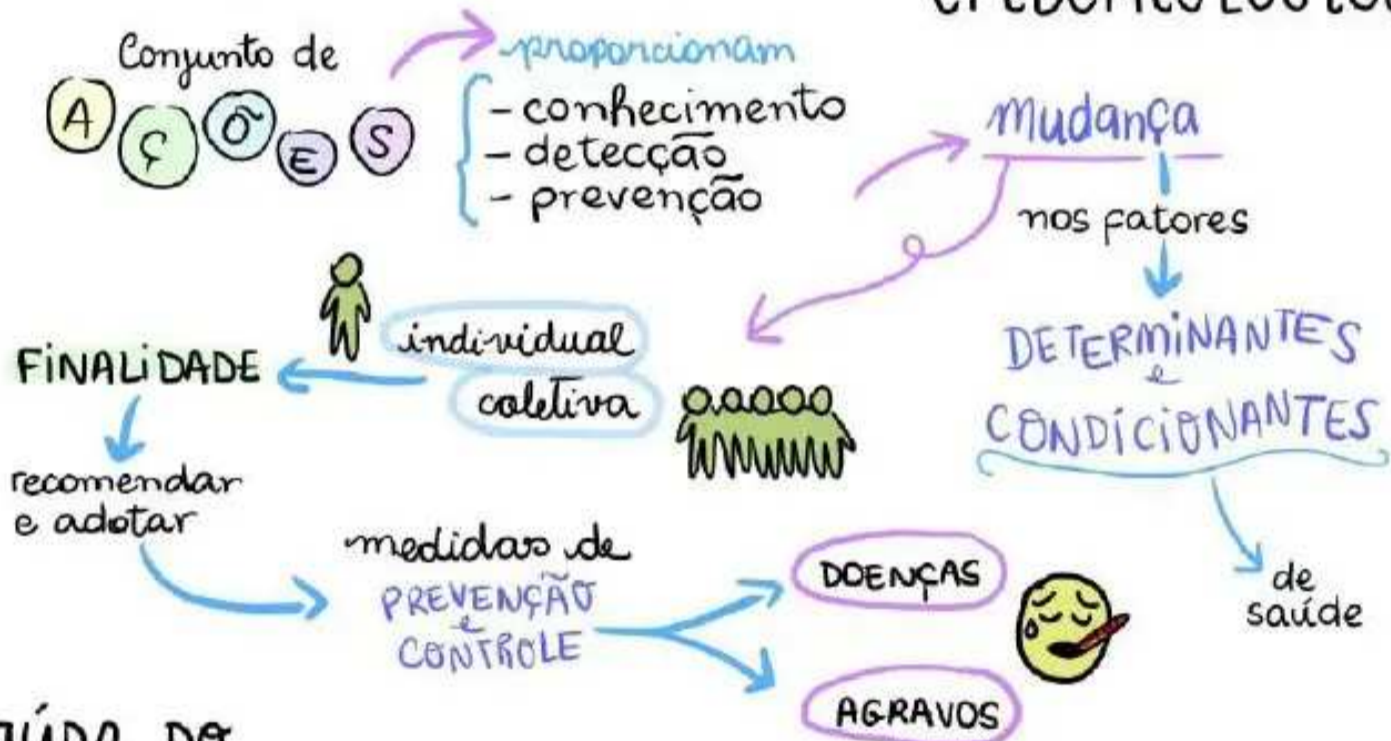 Conjunto de
AÇÕES
proporcionam
- conhecimento
- detecção
- prevenção
mudança
nos fatores
DETERMINANTES
e
CONDICIONANTES
de
saúde
individual
coletiva
FINALIDADE
recomendar
e adotar
medidas de
PREVENÇÃO
e
CONTROLE
DOENÇAS
AGRAVOS
DO